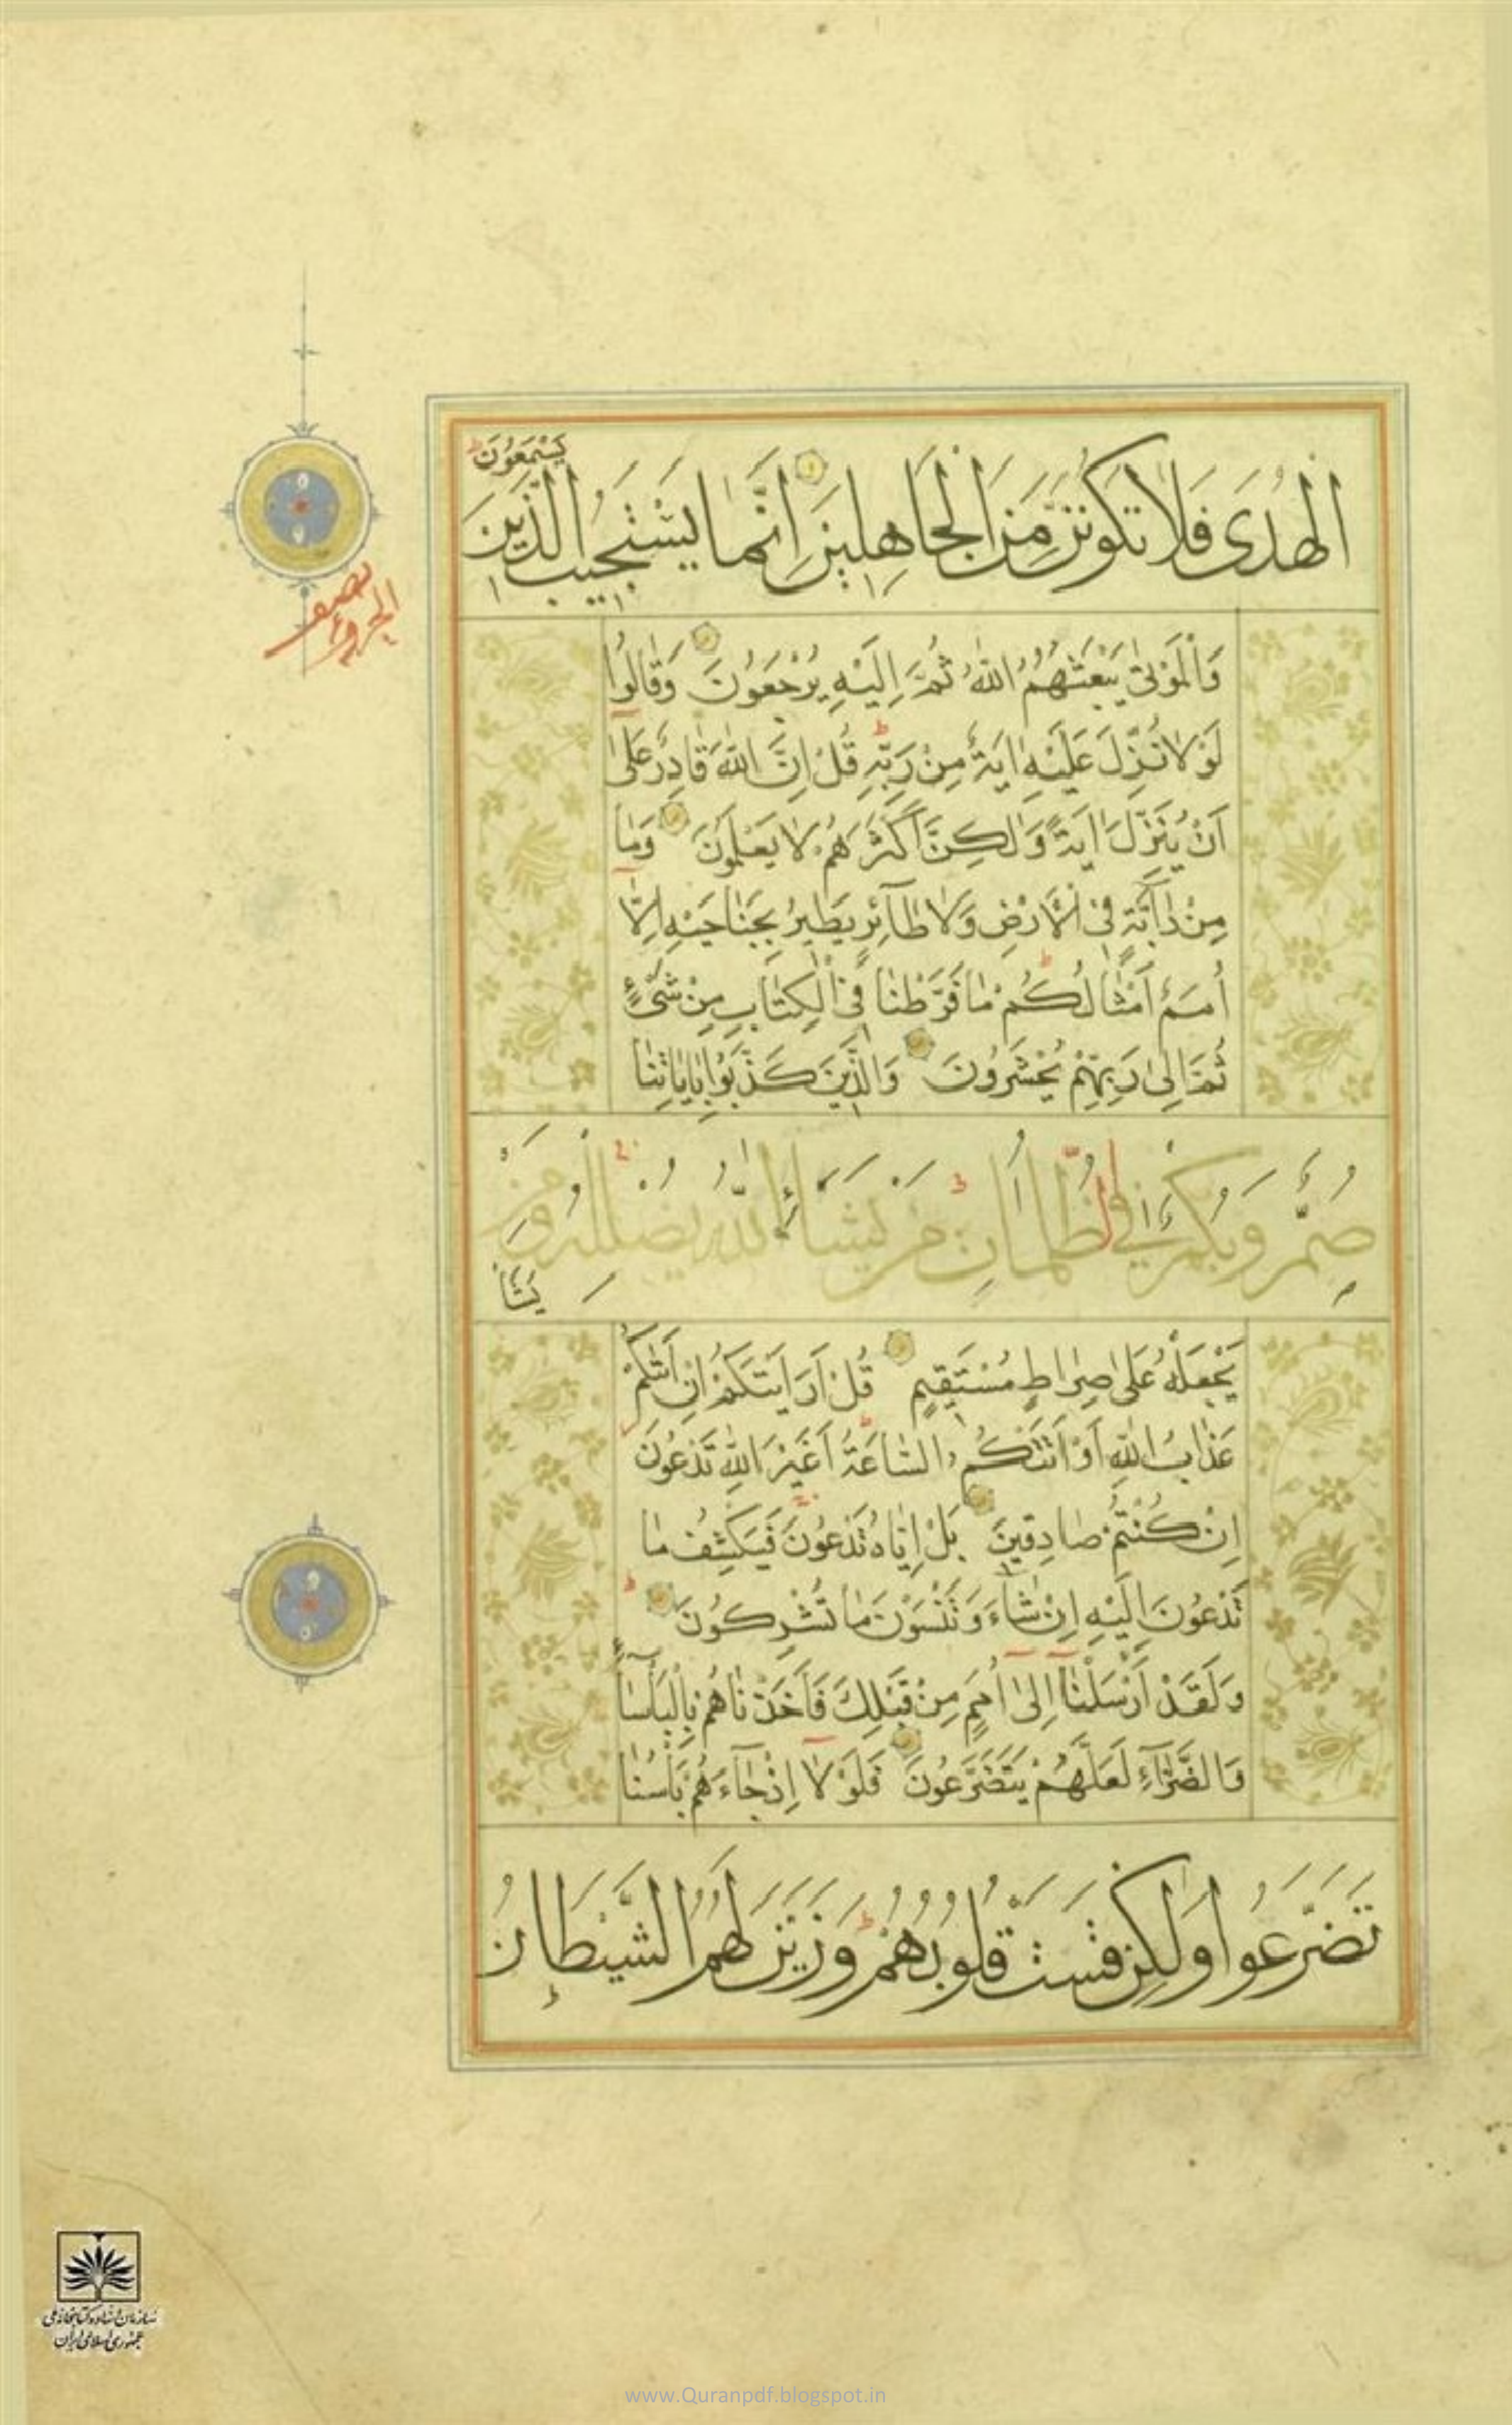 الْهُدَى فَلَا تَكُونَنَّ مِنَ الْجَاهِلِينَ إِنَّمَا يَسْتَجِيبُ الَّذِينَ
يَسْمَعُونَ
نصف الجزو
وَالْمَوْتىٰ يَبْعَثُهُمُ اللّٰهُ ثُمَّ اِلَيْهِ يُرْجَعُونَ وَقَالُوا
لَوْلَا نُزِّلَ عَلَيْهِ اٰيَةٌ مِنْ رَبِّهِ قُلْ اِنَّ اللّٰهَ قَادِرٌ عَلىٰ
اَنْ يُنَزِّلَ اٰيَةً وَلٰكِنَّ اَكْثَرَهُمْ لَا يَعْلَمُونَ وَمَا
مِنْ دَابَّةٍ فِي الْاَرْضِ وَلَا طَآئِرٍ يَطِيرُ بِجَنَاحَيْهِ اِلَّا
اُمَمٌ اَمْثَالُكُمْ مَا فَرَّطْنَا فِي الْكِتَابِ مِنْ شَيْءٍ
ثُمَّ اِلىٰ رَبِّهِمْ يُحْشَرُونَ وَالَّذِينَ كَذَّبُوا بِاٰيَاتِنَا
صُمٌّ وَبُكْمٌ فِي الظُّلُمَاتِ مَنْ يَشَاءِ اللّٰهُ يُضْلِلْهُ وَمَنْ
يَشَأْ
يَجْعَلْهُ عَلىٰ صِرَاطٍ مُسْتَقِيمٍ قُلْ اَرَاَيْتَكُمْ اِنْ اَتٰىكُمْ
عَذَابُ اللّٰهِ اَوْ اَتَتْكُمُ السَّاعَةُ اَغَيْرَ اللّٰهِ تَدْعُونَ
اِنْ كُنْتُمْ صَادِقِينَ بَلْ اِيَّاهُ تَدْعُونَ فَيَكْشِفُ مَا
تَدْعُونَ اِلَيْهِ اِنْ شَاءَ وَتَنْسَوْنَ مَا تُشْرِكُونَ
وَلَقَدْ اَرْسَلْنَا اِلىٰ اُمَمٍ مِنْ قَبْلِكَ فَاَخَذْنَاهُمْ بِالْبَأْسَاءِ
وَالضَّرَّآءِ لَعَلَّهُمْ يَتَضَرَّعُونَ فَلَوْلَا اِذْ جَآءَهُمْ بَأْسُنَا
تَضَرَّعُوا وَلٰكِنْ قَسَتْ قُلُوبُهُمْ وَزَيَّنَ لَهُمُ الشَّيْطَانُ
سازمان اسناد و کتابخانه ملی
جمهوری اسلامی ایران
www.Quranpdf.blogspot.in